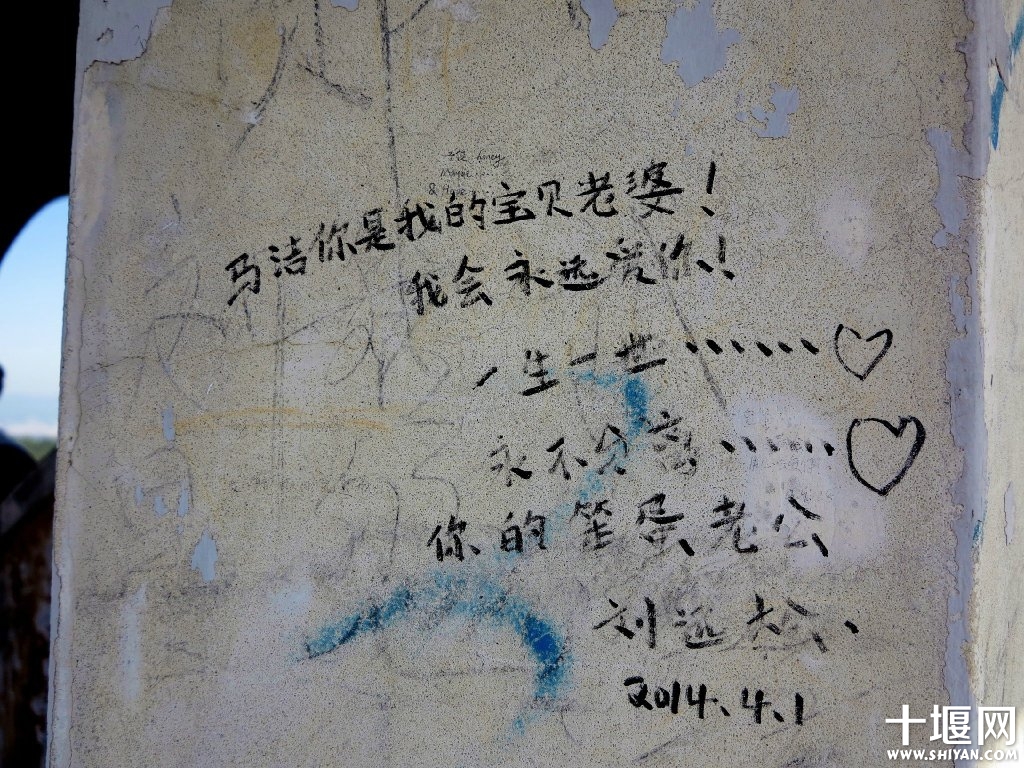 honey
马洁你是我的宝贝老婆！
我会永远爱你！
一生一世……
永不分离……
你的笨蛋老公
刘远松、
2014.4.1
十堰网
WWW.SHIYAN.COM